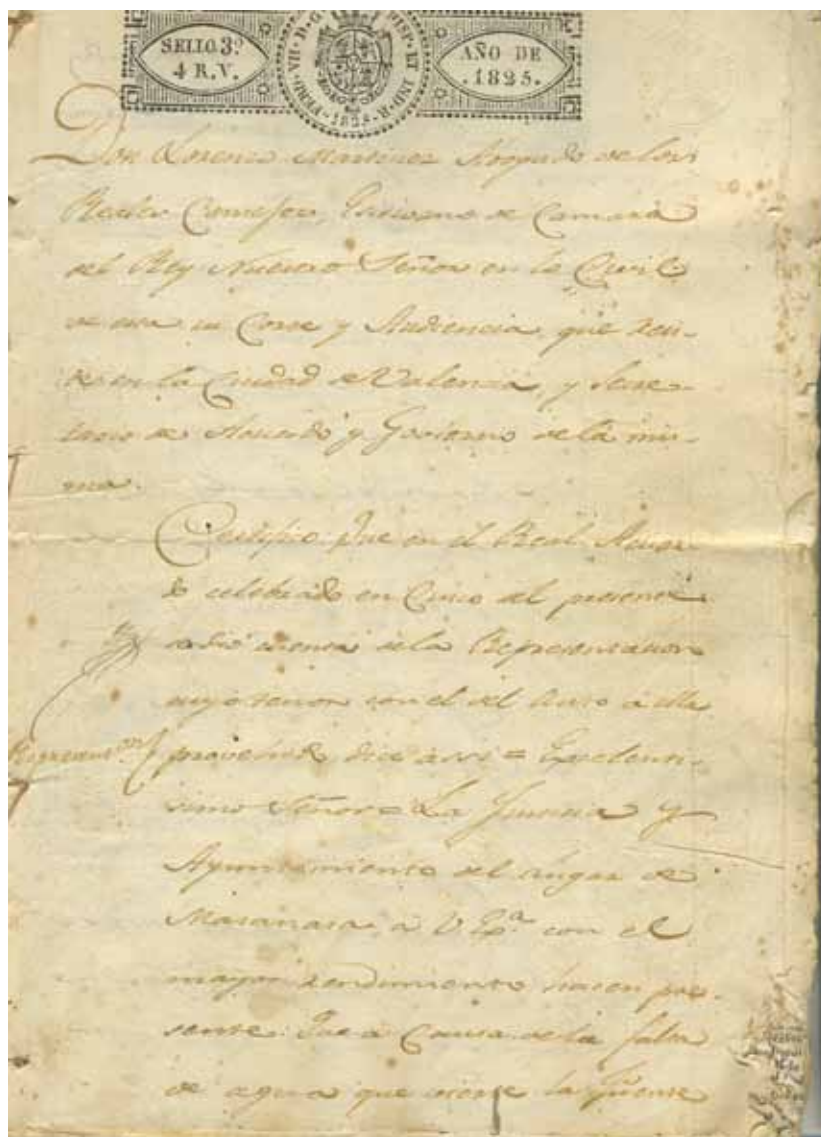 SELLO 3º
4 R.V.
FERD. VII. D. G. HISP. ET IND. R.
1825
AÑO DE
.1825.
Don Lorenzo Martinez Abogado de los
Reales Consejos, Escribano de Camara
del Rey Nuestro Señor en lo Civil
de esta su Corte y Audiencia, que resi-
de en la Ciudad de Valencia, y Secre-
tario de Acuerdo y Govierno de la mis-
ma.
Certifico: Que en el Real Acuer-
do celebrado en Cinco del presente
se dió cuenta de la Representacion
cuyo tenor con el del Auto á ella
provehido, dice assi = Excelenti-
simo Señor = La Justicia y
Ayuntamiento del Lugar de
Masanasa, a V. Exª con el
mayor rendimiento hacen pre-
sente: Que a Causa de la falta
de agua que tiene la fuente
Represent.on